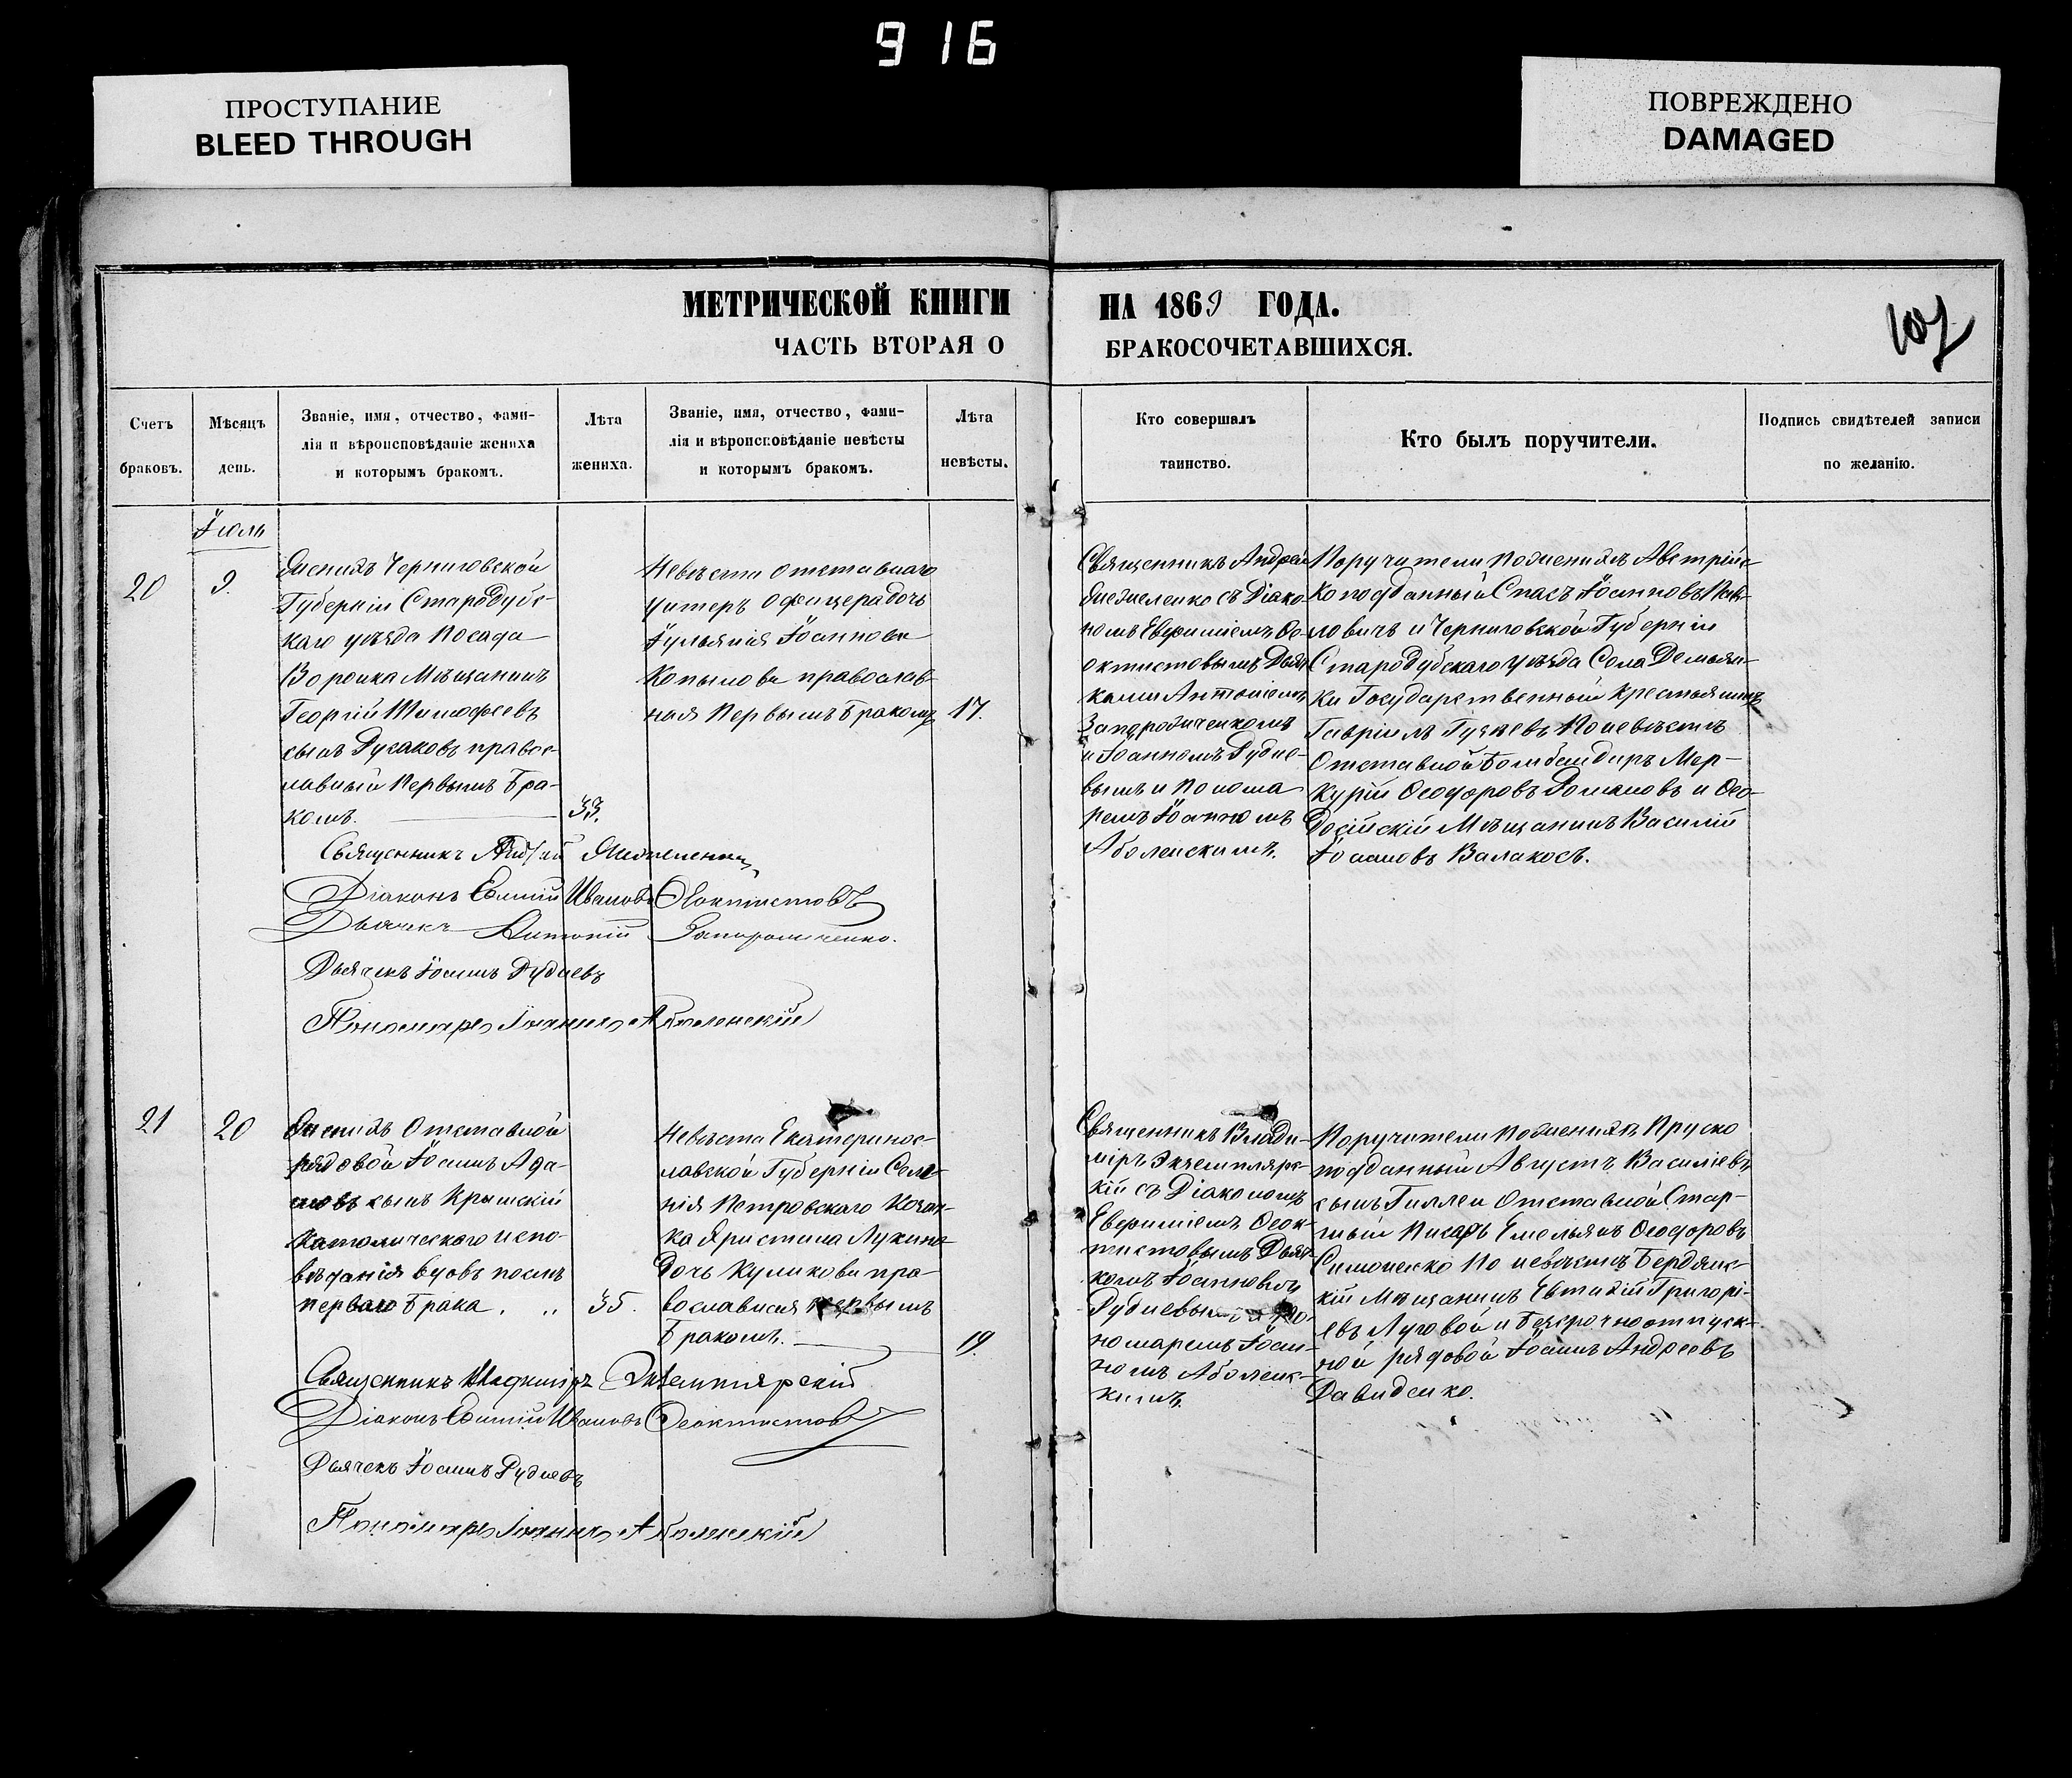 916
ПРОСТУПАНИЕ
BLEED THROUGH
ПОВРЕЖДЕНО
DAMAGED
МЕТРИЧЕСКОЙ КНИГИ НА 1869 ГОДА.
ЧАСТЬ ВТОРАЯ О БРАКОСОЧЕТАВШИХСЯ.
107
Счетъ
браковъ.
Мѣсяцъ
день.
Званіе, имя, отчество, фами-
лія и вѣроисповѣданіе жениха
и которымъ бракомъ.
Лѣта
жениха.
Званіе, имя, отчество, фами-
лія и вѣроисповѣданіе невѣсты
и которымъ бракомъ.
Лѣта
невѣсты.
Кто совершалъ
таинство.
Кто былъ поручители.
Подпись свидѣтелей записи
по желанію.
Іюль
20
9.
Женихъ Черниговской
Губерніи Стародубс-
каго уѣзда Посада
Воронка Мѣщанинъ
Георгій Тимофеевъ
сынъ Русаковъ правос-
лавный Первымъ Бра-
комъ.
33.
Невѣста Отставнаго
унтеръ Офицера дочь
Іульянія Іоаннова
Копылова православ-
ная Первымъ Бракомъ
17.
Священникъ Андрей
съ Діако-
номъ Евфиміемъ Ѳе-
октистовымъ Дьяч-
ками Антоніемъ
и Іоанномъ Рудне-
вымъ и Понома
ремъ Іоанномъ
Аболенскимъ.
Поручители по женихѣ Австрійс-
ко подданный Спасъ Іоанновъ Пав-
ловичъ и Черниговской Губерніи
Стародубскаго уѣзда Села Демьян-
ки Государственный крестьянинъ
Гавріилъ По невѣстѣ
Отставной Бомбандиръ Мер-
курій Ѳеодоровъ Романовъ и Ѳео-
досійскій Мѣщанинъ Василій
Іоанновъ Валакосъ.
Священникъ Андрей
Діаконъ Евѳимій Ивановъ Ѳеоктистовъ
Дьячекъ Антоній
Дьячекъ Іоаннъ Рудневъ
Пономарь Іоаннъ Аболенскій
21
20
Женихъ Отставной
рядовой Іоаннъ Ада-
мовъ сынъ Крымскій
Католическаго испо-
вѣданія вдовъ послѣ
перваго брака.
35.
Невѣста Екатеринос-
лавской Губерніи Селе-
нія Петровскаго Козач-
ка Христина Лукина
дочь Куликова пра-
вославная первымъ
Бракомъ.
19.
Священникъ Влади-
міръ Экземплярс-
кій съ Діакономъ
Евфиміемъ Ѳеок-
тистовымъ Дьяч-
комъ Іоанномъ
Рудневымъ и По-
номаремъ Іоан-
номъ Аболенс-
кимъ.
Поручители по женихѣ Пруско
подданный Августъ Василіевъ
сынъ Гиллеи Отставной Стар-
шый Писарь Емельянъ Ѳеодоровъ
Симоненко По невѣстѣ Бердянс-
кій Мѣщанинъ Евтихій Григорі-
евъ Луговой и Безсрочноотпуск-
ной рядовой Іоаннъ Андреевъ
Давиденко.
Священникъ Владиміръ Экземплярскій
Діаконъ Евѳимій Ивановъ Ѳеоктистовъ
Дьячекъ Іоаннъ Рудневъ
Пономарь Іоаннъ Аболенскій